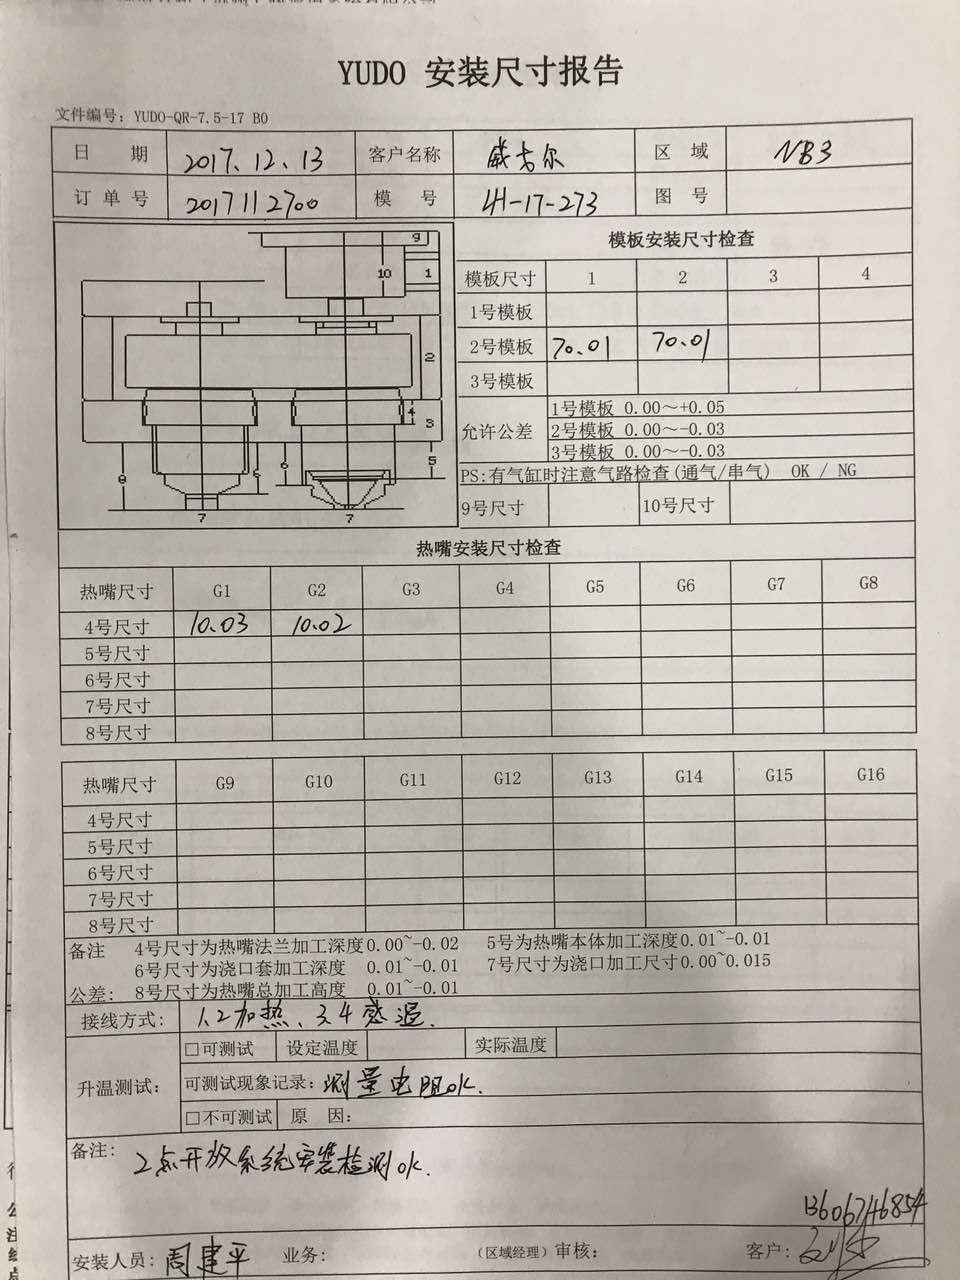 YUDO 安装尺寸报告
文件编号：YUDO-QR-7.5-17 B0
日 期 2017.12.13 客户名称 威戈尔 区 域 NB3
订单号 2017112700 模 号 4H-17-273 图 号
模板安装尺寸检查
模板尺寸 1 2 3 4
1号模板
2号模板 70.01 70.01
3号模板
允许公差 1号模板 0.00～+0.05
2号模板 0.00～-0.03
3号模板 0.00～-0.03
PS:有气缸时注意气路检查(通气/串气) OK / NG
9号尺寸 10号尺寸
9
10 1
2
4
3
5
8 6 6
7 7
热嘴安装尺寸检查
热嘴尺寸 G1 G2 G3 G4 G5 G6 G7 G8
4号尺寸 10.03 10.02
5号尺寸
6号尺寸
7号尺寸
8号尺寸
热嘴尺寸 G9 G10 G11 G12 G13 G14 G15 G16
4号尺寸
5号尺寸
6号尺寸
7号尺寸
8号尺寸
备注 4号尺寸为热嘴法兰加工深度0.00~-0.02 5号为热嘴本体加工深度0.01~-0.01
6号尺寸为浇口套加工深度 0.01~-0.01 7号尺寸为浇口加工尺寸0.00~0.015
公差: 8号尺寸为热嘴总加工高度 0.01~-0.01
接线方式: 1.2加热、3.4感温.
升温测试: □可测试 设定温度 实际温度
可测试现象记录: 测量电阻OK.
□不可测试 原 因:
备注: 2点开放系统安装检测OK.
13606746854
安装人员: 周建平 业务: (区域经理)审核: 客户: